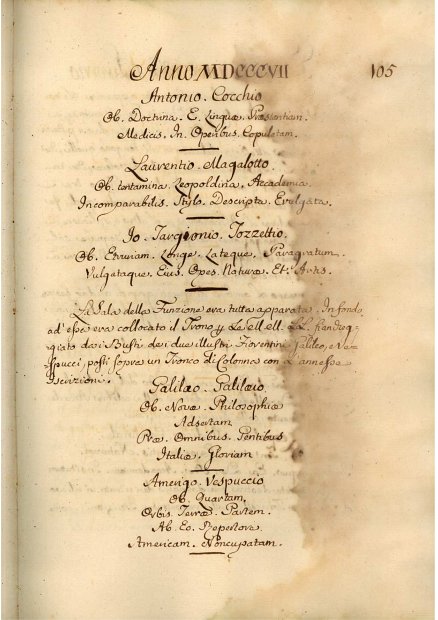 Anno MDCCCVII
105
Antonio. Cocchio
Ob. Doctrina. E. Linguæ. Præsentiam.
Medicis. In. Operibus. Copulatam.
Laurentio. Magalotto.
Ob. tentamina. Leopoldina. Accademia.
Incomparabilis. Stylo. Descripta. Evulgata.
Io. Targionio. Tozzettio.
Ob. Etruriam. Longe. Lateque. Paragratam.
Vulgataque. Eius. Opes. Naturæ. Et. Artis.
La Sala della Funzione era tutta apparata. In fondo
ad' essa era collocato il Trono p Le Ll. ell. LL. fiancheg-
giato dai Busti dei due illustri Fiorentini Galileo, e Ve-
spucci, posti sopra un Tronco di Colonna con l'annesse
Iscrizioni.
Galilæo. Galilæio
Ob. Novæ. Philosophiæ
Adsertam
Præ. Omnibus. Gentibus
Italiæ. Gloriam
Amerigo. Vespuccio
Ob. Quartam.
Orbis. Terræ. Partem.
Ab. Eo.
Americam. Noncupatam.